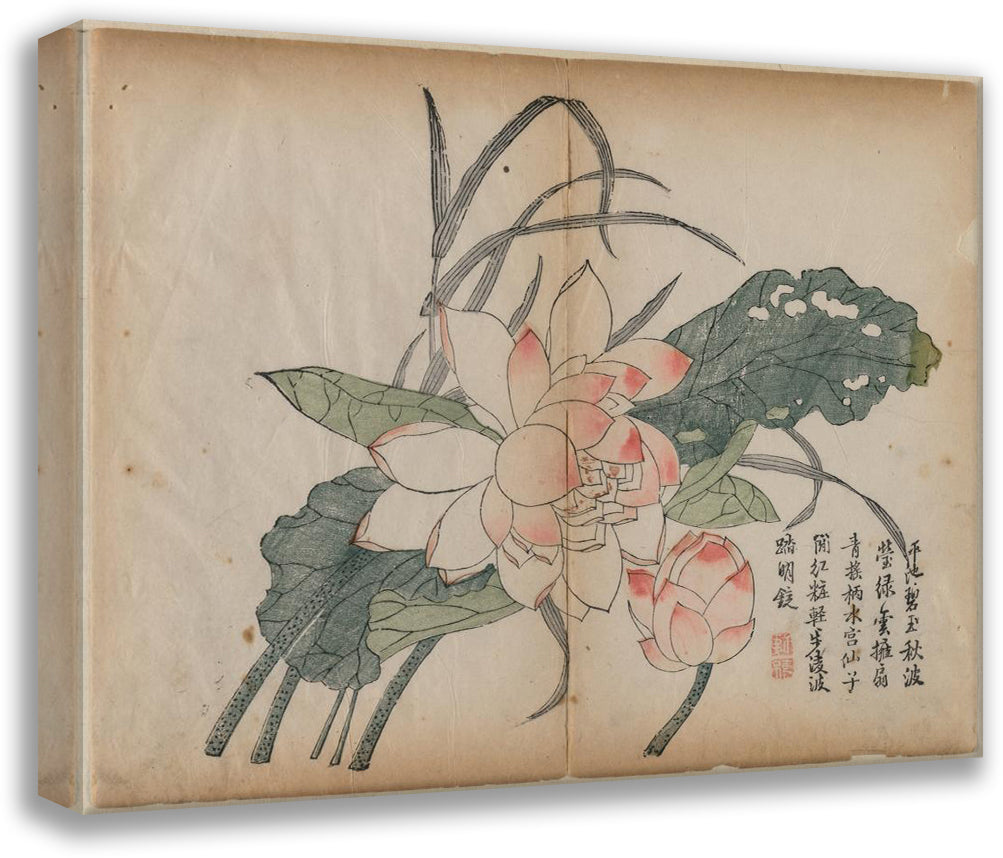 平池碧玉秋波
瑩綠雲擁扇
青搖柄水宮仙子
鬬紅粧輕步凌波
踏明鏡